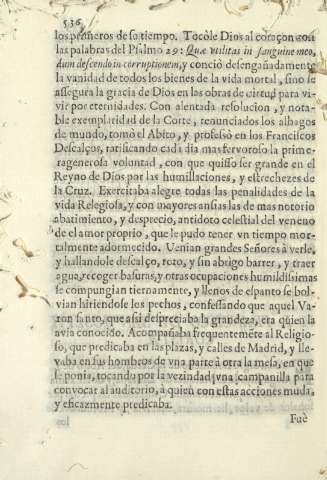 536
los primeros de so tiempo. Tocòle Dios al coraçon con
las palabras del Psalmo 29: Quæ vtilitas in sanguine meo,
dum descendo in corruptionem, y conció desengañadamente
la vanidad de todos los bienes de la vida mortal, sino se
assegura la gracia de Dios en las obras de virtud para vi-
vir por eternidades. Con alentada resolucion, y nota-
ble exemplaridad de la Corte, renunciados los alhagos
de mundo, tomò el Abito, y professò en los Franciscos
Descalços, ratificando cada dia mas fervoroso la prime-
ra generosa voluntad, con que quisso ser grande en el
Reyno de Dios por las humillaciones, y estrechezes de
la Cruz. Exercitaba alegre todas las penalidades de la
vida Relegiosa, y con mayores ansias las de mas notorio
abatimiento, y desprecio, antidoto celestial del veneno
de el amor proprio, que le pudo tener vn tiempo mor-
talmente adormecido. Venian grandes Señores à verle,
y hallandole descalço, roto, y sin abrigo barrer, y traer
agua, recoger basuras, y otras ocupaciones humildissimas
se compungian tiernamente, y llenos de espanto se bol-
vian hiriendose los pechos, confessando que aquel Va-
ron santo, que assi despreciaba la grandeza, era quien la
avia conocido. Acompañaba frequentemẽte al Religio-
so, que predicaba en las plazas, y calles de Madrid, y lle-
vaba en sus hombros de vna parte à otra la mesa, en que
se ponia, tocando por la vezindad vna campanilla para
convocar al auditorio, à quien con estas acciones muda,
y eficazmente predicaba.
Fuè